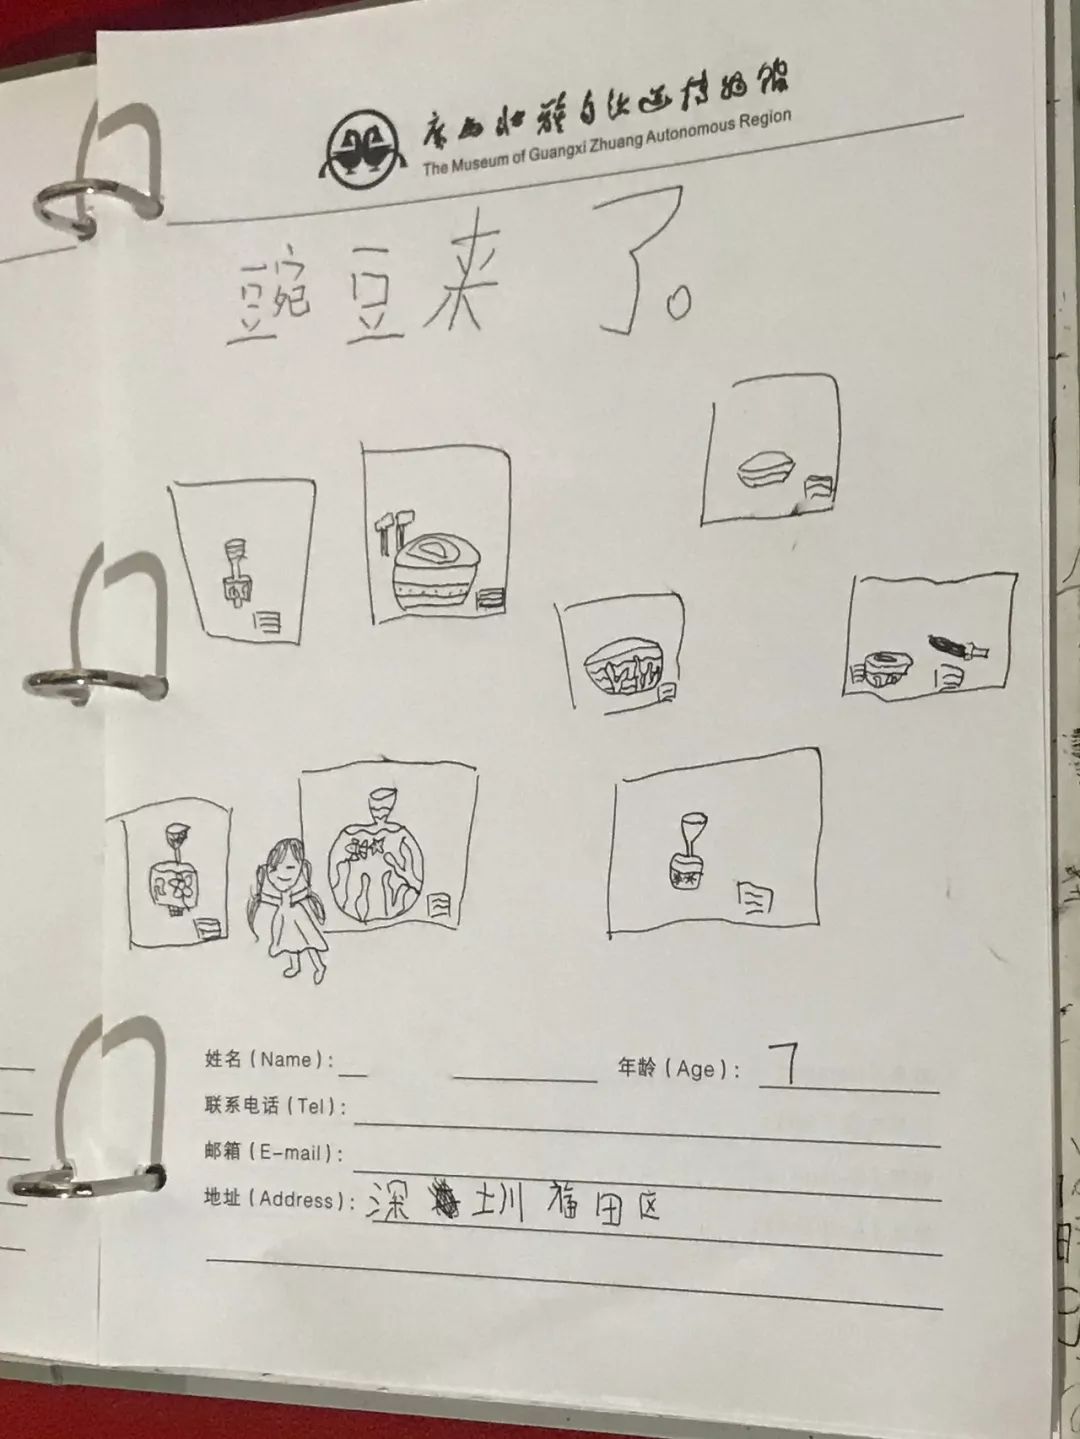 广西壮族自治区博物馆
The Museum of Guangxi Zhuang Autonomous Region
豌豆来了。
姓名(Name):
年龄(Age): 7
联系电话(Tel):
邮箱(E-mail):
地址(Address): 深圳福田区